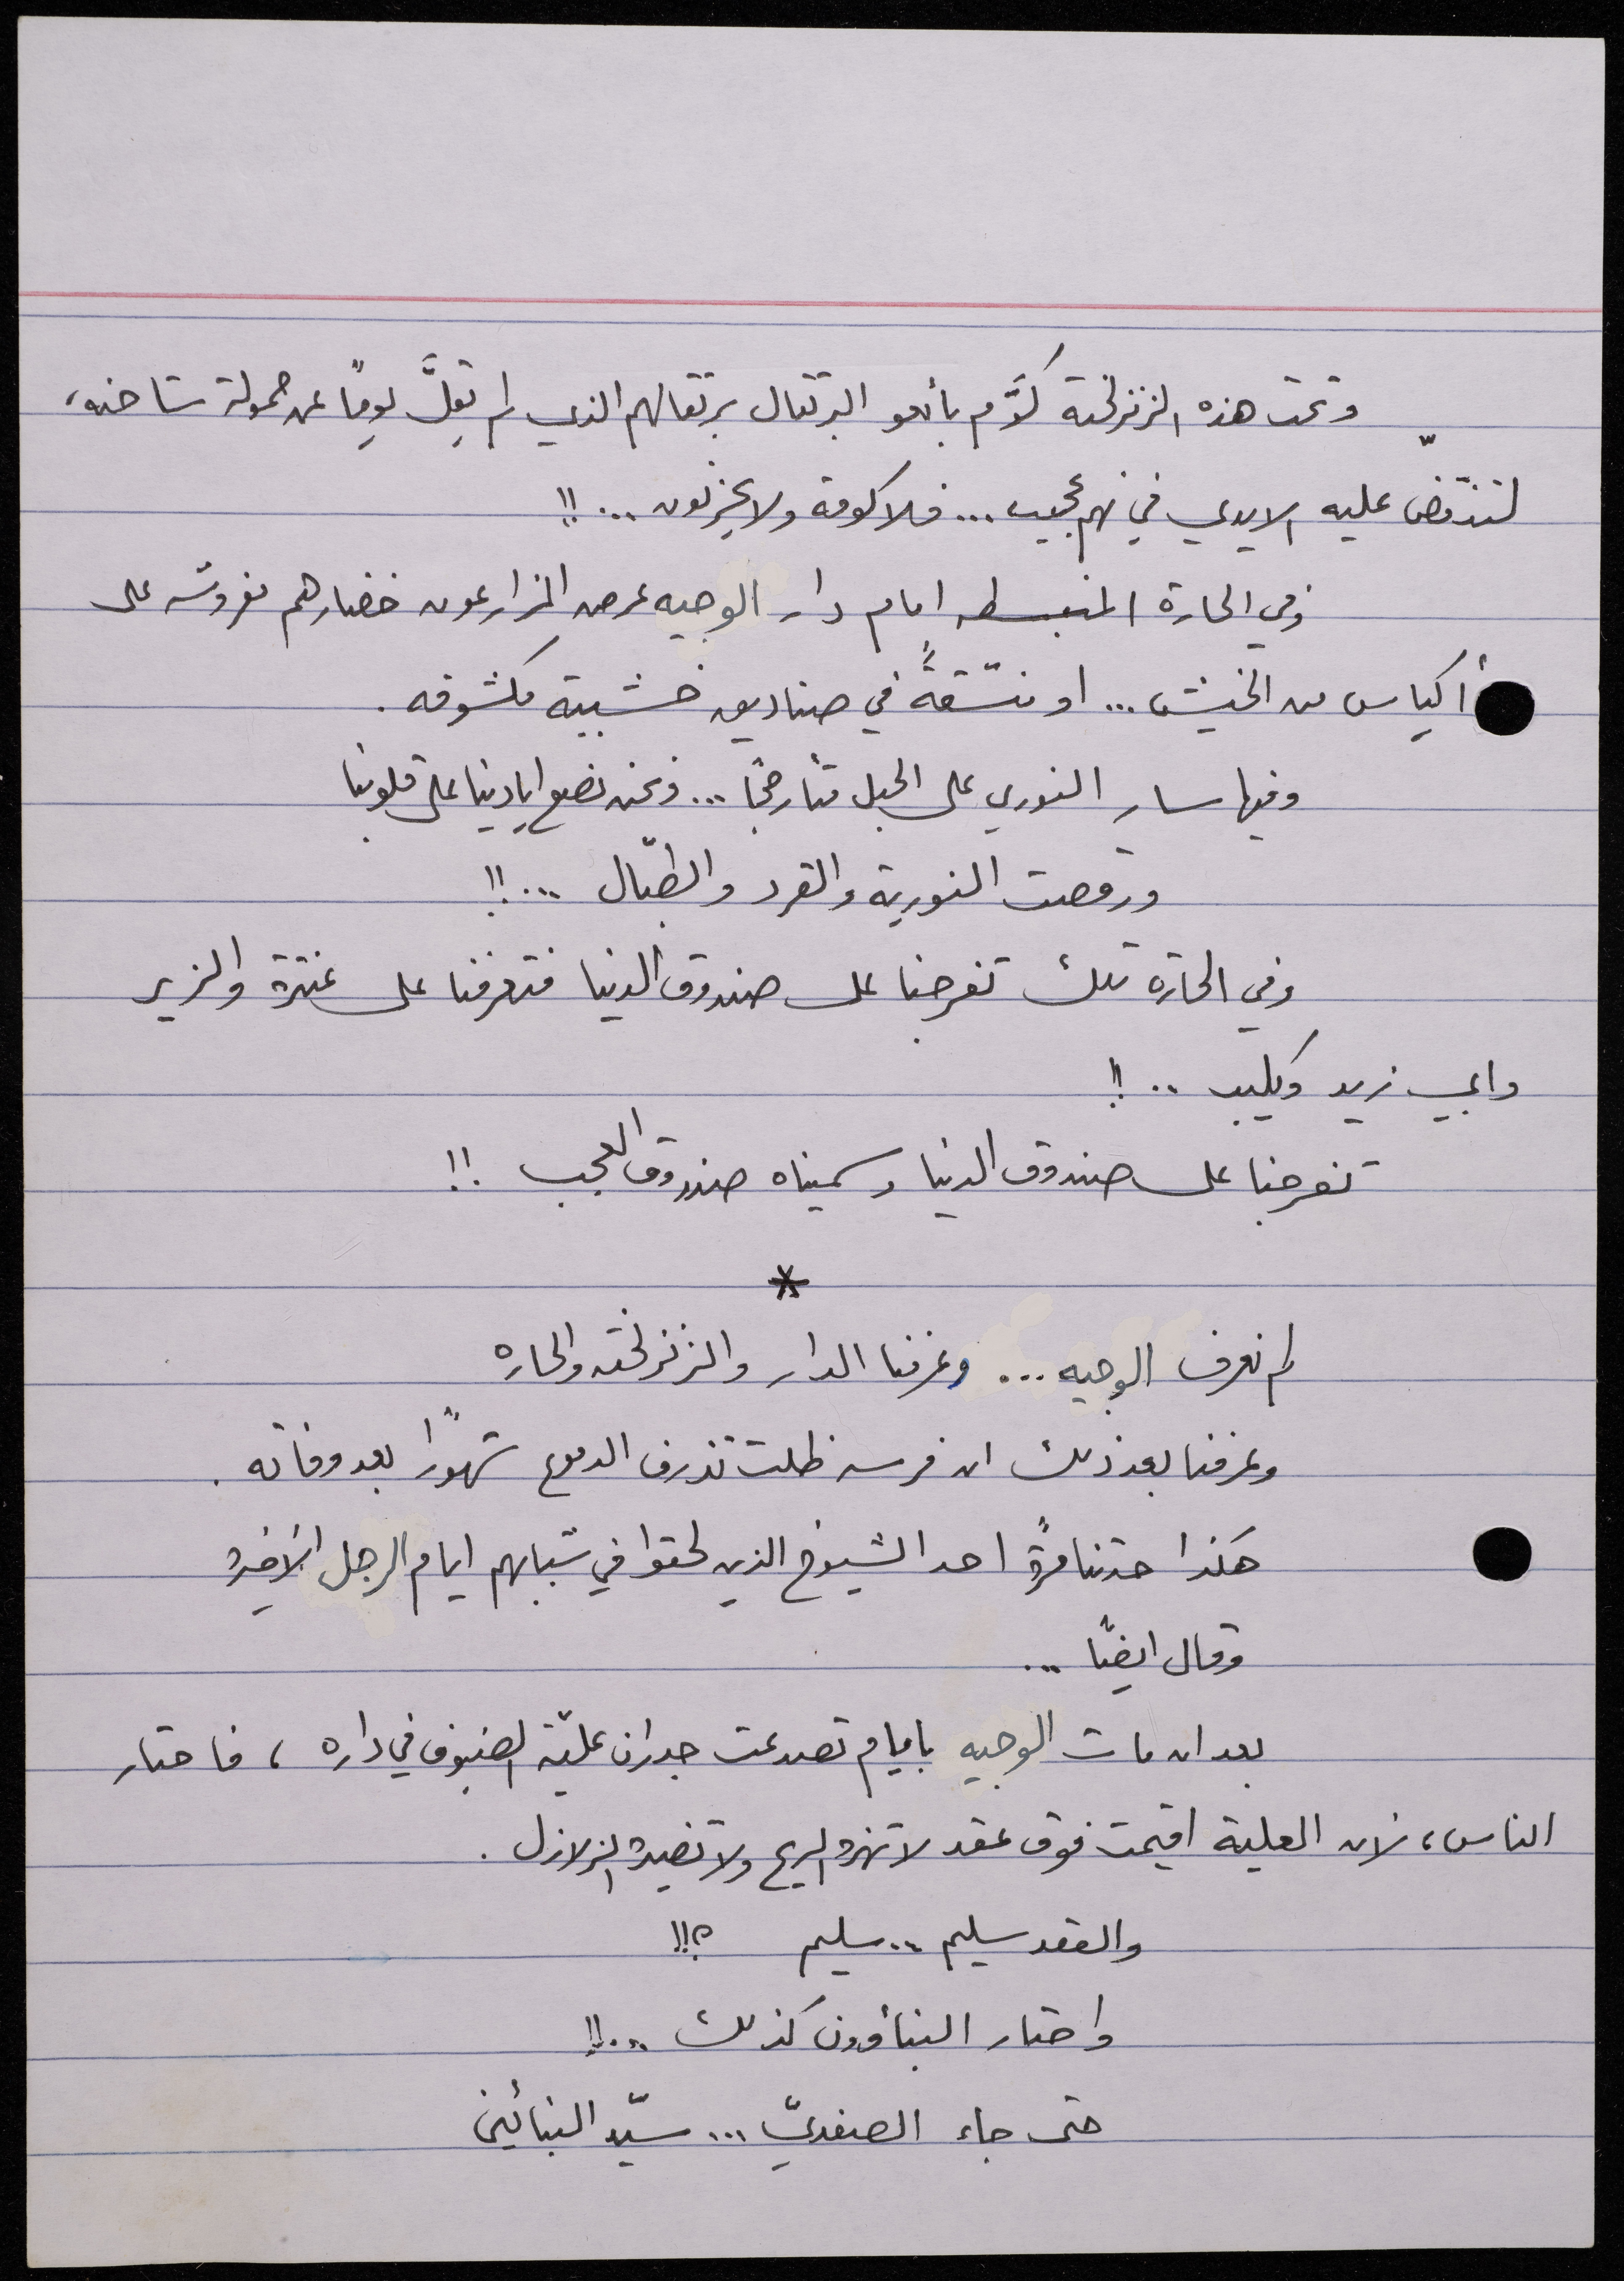 وتحت هذه الزنزلختة كوَّم بائعو البرتقال برتقالهم الذي لم يقِلَّ يومًا عن حمولة شاحنه،
لتنقضّ عليه الايدي في نهم عجيب... فلا كومة ولا يحزنون...!!
وفي الحارة المنبسطه امام دار الوجيه عرض المزارعون خضارهم مفروشه على
أكياس من الخيش... او منسّقةً في صناديق خشبية مكشوفه.
وفيها سار النوري على الحبل متأرجحًا... ونحن نضع ايادينا على قلوبنا
ورقصت النورية والقرد والطبّال ...!!
وفي الحارة تلك تفرجنا على صندوق الدنيا فتعرفنا على عنترة والزير
وابي زيد وكليب ..!!
تفرجنا على صندوق الدنيا وسميناه صندوق العجب !!
*
لم نعرف الوجيه... وعرفنا الدار والزنزلخته والحاره
وعرفنا بعد ذلك ان فرسه ظلت تذرف الدموع شهورًا بعد وفاته.
هكذا حدثنا مرةً احد الشيوخ الذين لحقوا في شبابهم ايام الرجل الأخيرة
وقال ايضًا ...
بعد ان مات الوجيه بايام تصدعت جدران عليّة الضيوف في داره، فاحتار
الناس، لان العلية اقيمت فوق عقد لا تهزه الريح ولا تضيره الزلازل.
والعقد سليم .. سليم ؟!!
واحتار البنأوون كذلك ...!!
حتى جاء الصفديّ... سيّد البنائين